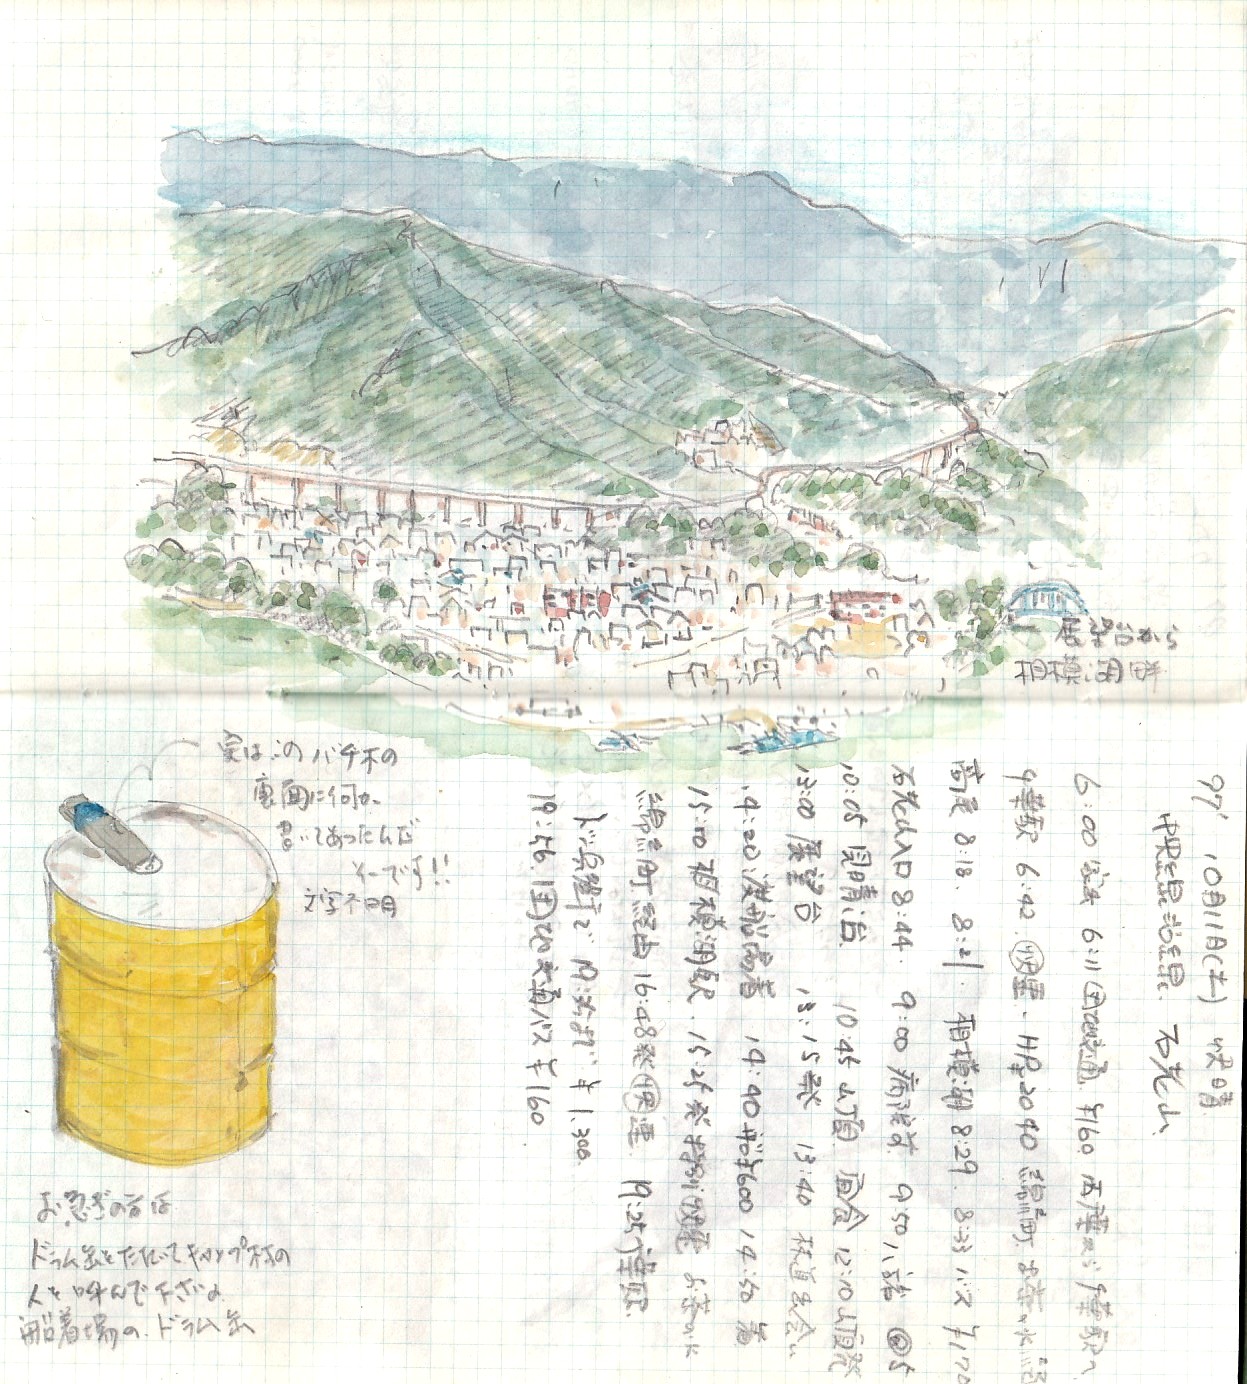 展望台から
相模湖畔
実はこのバチ木の
裏面に何か
書いてあったんだ
そーです!!
文字不明
お急ぎの方は
ドラム缶をたたいてキャンプ村の
人を呼んで下さい
船着場の、ドラム缶
97' 10月11日(土) 快晴
中央線沿線 石老山
6:00 家発 6:11 団地交通 ¥160
6:42 快速 HP2040 錦糸町 お茶の水
高尾 8:18. 8:21. 相模湖 8:29. 8:33 バス ¥170
石老山入口 8:44. 9:00 病院前 9:50 八
10:05 見晴台 10:45 山頂 昼食 12:10 山頂発
13:00 展望台 13:15 発 13:40
14:20 渡船場着 14:40 ¥600 14:50 着
15:10 相模湖駅. 15:25 発 特別快速 お茶の水
錦糸町経由 16:48発 快速
¥1.300
団地交通バス ¥160